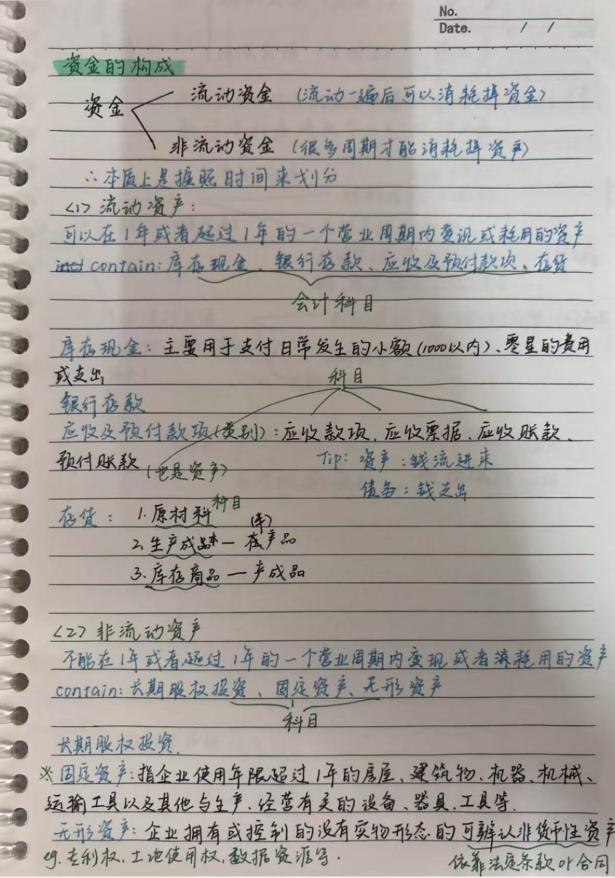 No.
Date. / /
资金的构成
资金
流动资金 (流动一遍后可以消耗掉资金)
非流动资金 (很多周期才能消耗掉资产)
∴本质上是按照时间来划分
<1> 流动资产:
可以在1年或者超过1年的一个营业周期内变现或耗用的资产
contain: 库存现金、银行存款、应收及预付款项、存货
会计科目
库存现金: 主要用于支付日常发生的小额(1000以内)、零星的费用
或支出
科目
银行存款
应收及预付款项(类别): 应收款项、应收票据、应收账款、
预付账款 (也是资产) Tip: 资产: 钱流进来
债务: 钱支出
科目
存货: 1. 原材料
(半)
2. 生产成本 — 在产品
3. 库存商品 — 产成品
<2> 非流动资产
不能在1年或者超过1年的一个营业周期内变现或者消耗用的资产
contain: 长期股权投资、固定资产、无形资产
科目
长期股权投资.
※ 固定资产: 指企业使用年限超过1年的房屋、建筑物、机器、机械、
运输工具以及其他与生产、经营有关的设备、器具、工具等.
无形资产: 企业拥有或控制的没有实物形态的可辨认非货币性资产
eg. 专利权、土地使用权、数据资源等. 依靠法定条款 or 合同